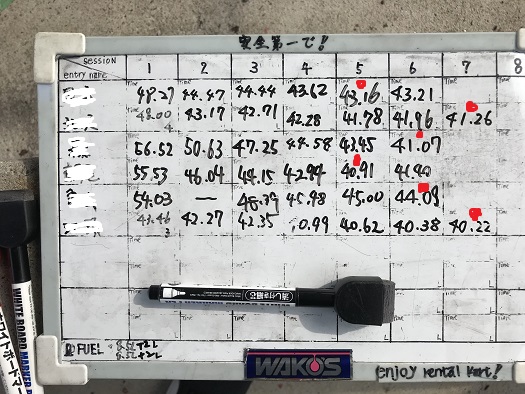 安全第一で!
SESSION 1 2 3 4 5 6 7 8
entry name
48.27 44.47 44.44 43.62 43.16 43.21
48.00 43.17 42.71 42.28 41.78 41.96 41.26
56.52 50.63 47.25 44.58 43.45 41.07
55.53 46.04 44.15 42.94 40.91 41.40
54.03 — 45.98 45.00 44.09
43.46 42.27 42.35 0.99 40.62 40.38 40.22
消し付き細芯
FUEL
WAKO'S
enjoy rental kart!
WHITE BOARD MARKER
ホワイトボードマー